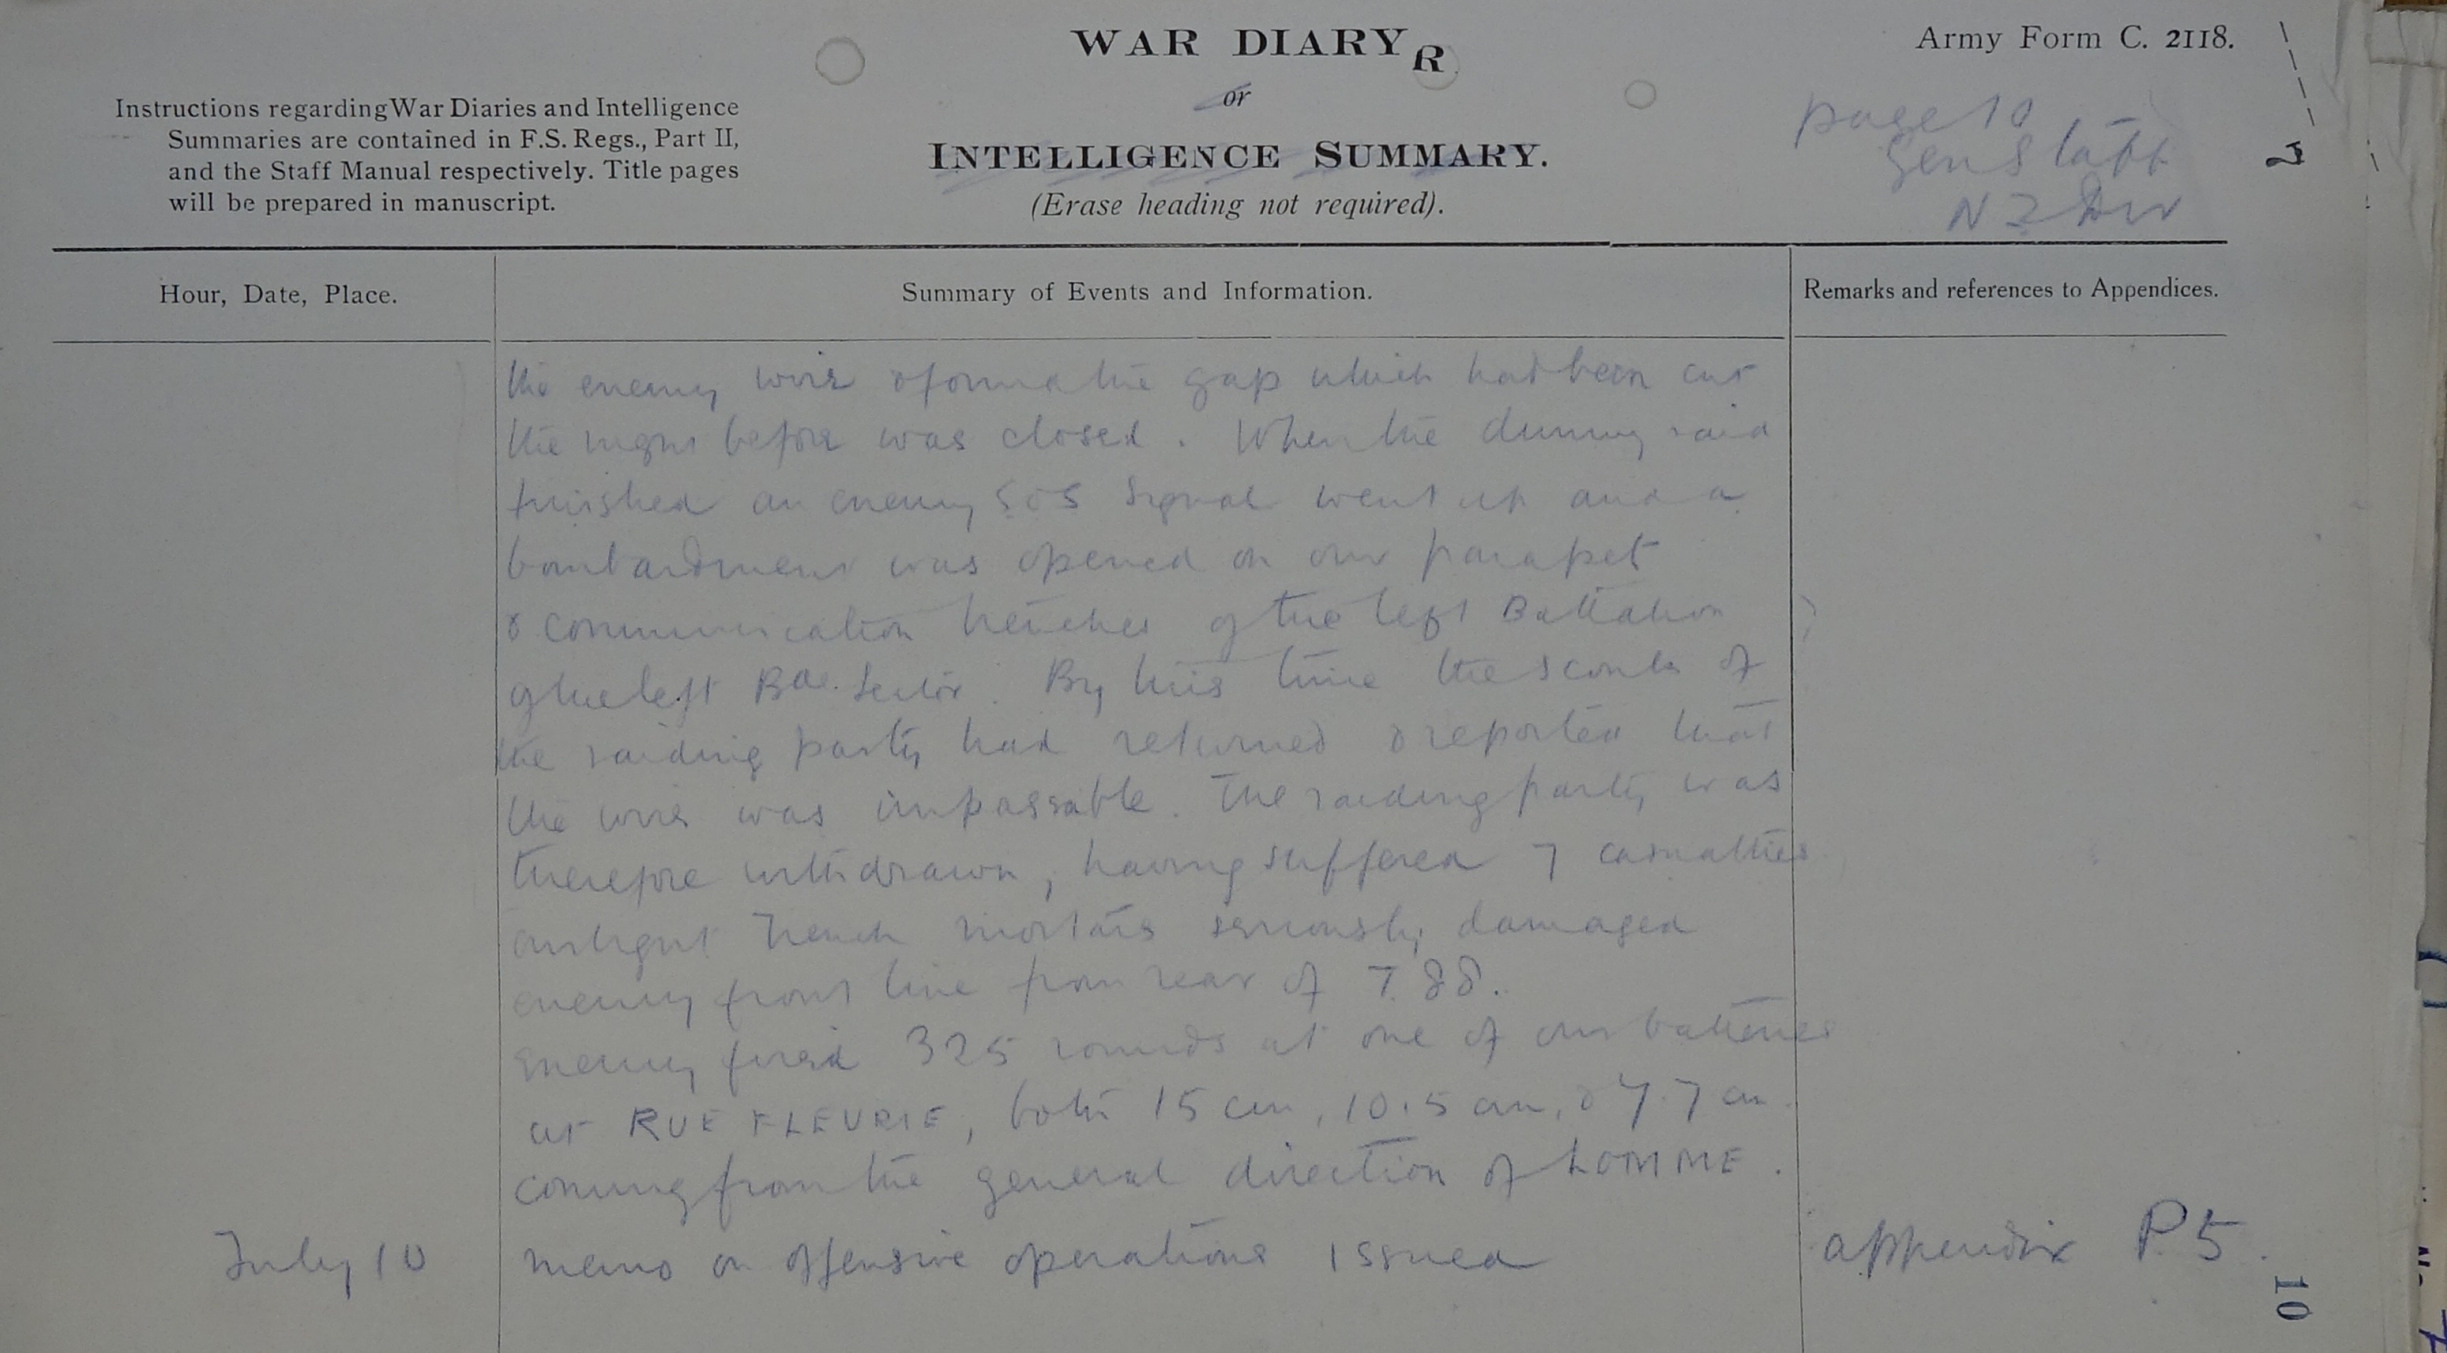 WAR DIARY R
Army Form C. 2118.
or
INTELLIGENCE SUMMARY.
(Erase heading not required).
Instructions regarding War Diaries and Intelligence
Summaries are contained in F.S. Regs., Part II,
and the Staff Manual respectively. Title pages
will be prepared in manuscript.
page 10
Gen Staff
N Z Div
Hour, Date, Place.
Summary of Events and Information.
Remarks and references to Appendices.
the enemy wire & found the gap which had been cut
the night before was closed. When the dummy raid
finished an enemy SOS signal went up and a
bombardment was opened on our parapet
& communication trenches of the left Battalion
of the left Bde. Sector. By this time the scouts of
the raiding party had returned & reported that
the wire was impassable. The raiding party was
therefore withdrawn, having suffered 7 casualties
our light trench mortars seriously damaged
enemy front line from rear of T. 88.
Enemy fired 325 rounds at one of our batteries
at RUE FLEURIE, both 15 cm, 10.5 cm, & 7.7 cm
coming from the general direction of LOMME.
July 10
memo on offensive operations issued
appendix P5.
10